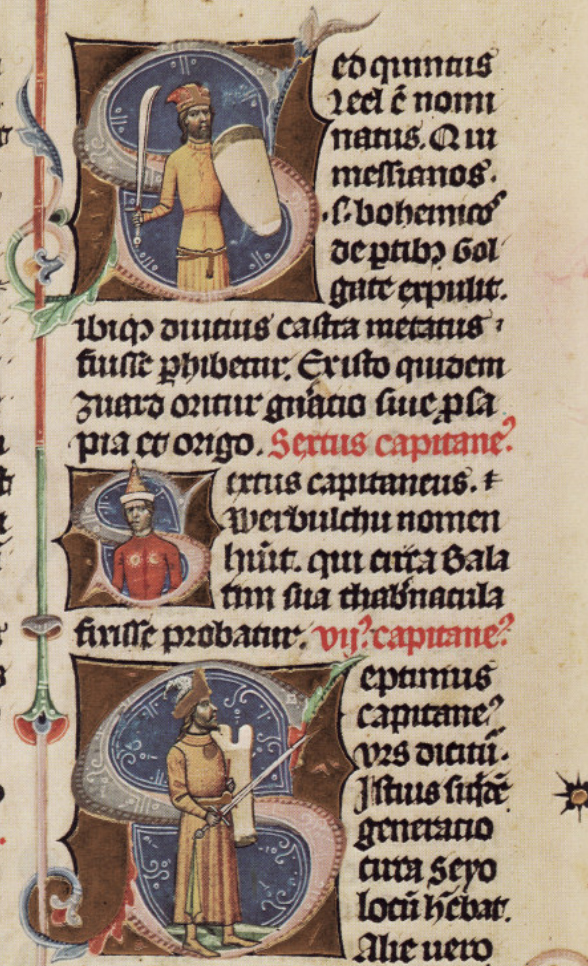 Sed quintus
Leel ē nomi
natus. Qui
messianos.
.s. bohemicos
de ptibꝫ Gol
gate expulit.
ibiqꝫ diutius castra metatus
fuisse ꝑhibetur. Ex isto quidem
zuard oritur gn̄atio siue ꝓsa
pia et origo. Sextus capitaneꝰ.
Sextus capitaneus.
Werbulchu nomen
hūit. qui circa Bala
tim sua thab̄nacula
fixisse probatur. vijꝰ. capitaneꝰ
Septimus
capitaneꝰ
vrs dicitū.
Istius siqͥdē
generatio
circa Seyo
locū hēbat.
Alie uero